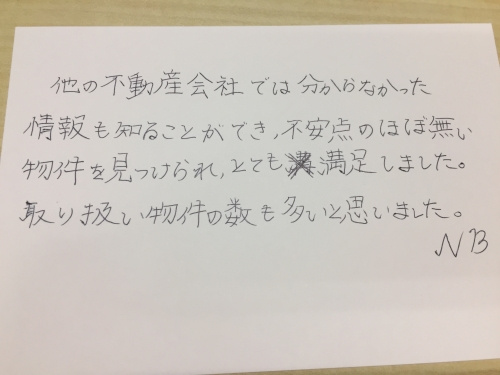 他の不動産会社では分からなかった
情報も知ることができ、不安点のほぼ無い
物件を見つけられ、とても満足しました。
取り扱い物件の数も多いと思いました。
NB